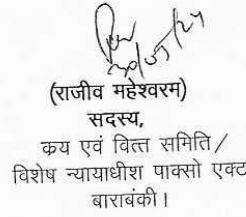 (राजीव महेश्वरम)
सदस्य,
कय एवं वित्त समिति /
विशेष न्यायाधीश पाक्सो एक्ट
बाराबंकी।